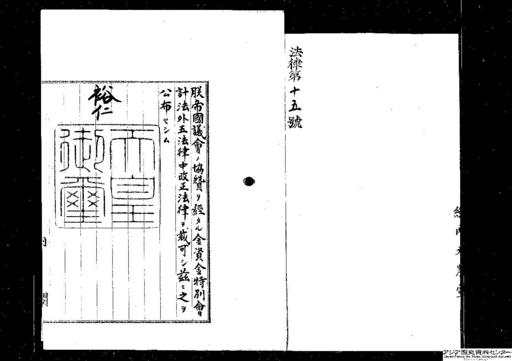 法律第十五號
朕帝國議會ノ協贊ヲ經タル金資金特別會
計法外五法律中改正法律ヲ裁可シ茲ニ之ヲ
公布セシム
裕仁
天皇御璽
內閣
アジア歴史資料センター
Japan Center for Asian Historical Records